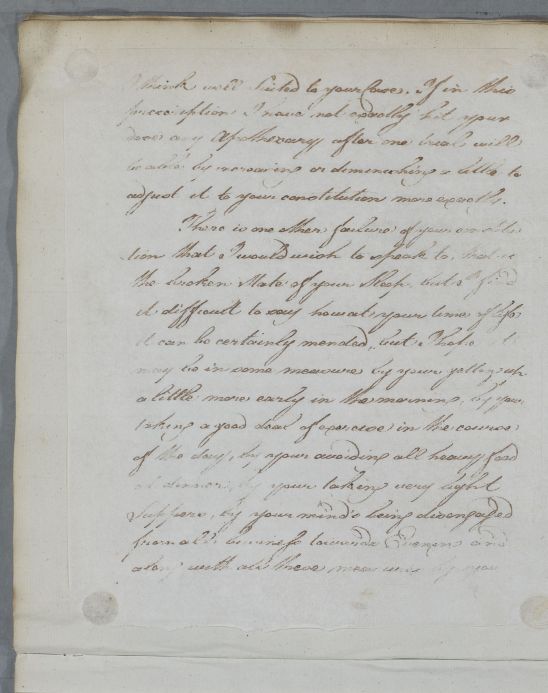 think well suited to your Case. If in this
prescription I have not exactly hit your
case any Apothecary after one trial will
be able by increasing or diminishing a little to
adjust it to your constitution more exactly.
There is one other failure of your constitu
tion that I would wish to speak to, that is
the broken state of your Sleep, but I find
it difficult to say how at your time of life
it can be certainly mended, but I hope it
may be in some measure by your getting up
a little more early in the morning, by your
taking a good deal of exercise in the course
of the day, by your avoiding all heavy food
at dinner, by your taking very light
Suppers, by your mind's being disengaged
from all business towards Evening and
along with all these measures by your